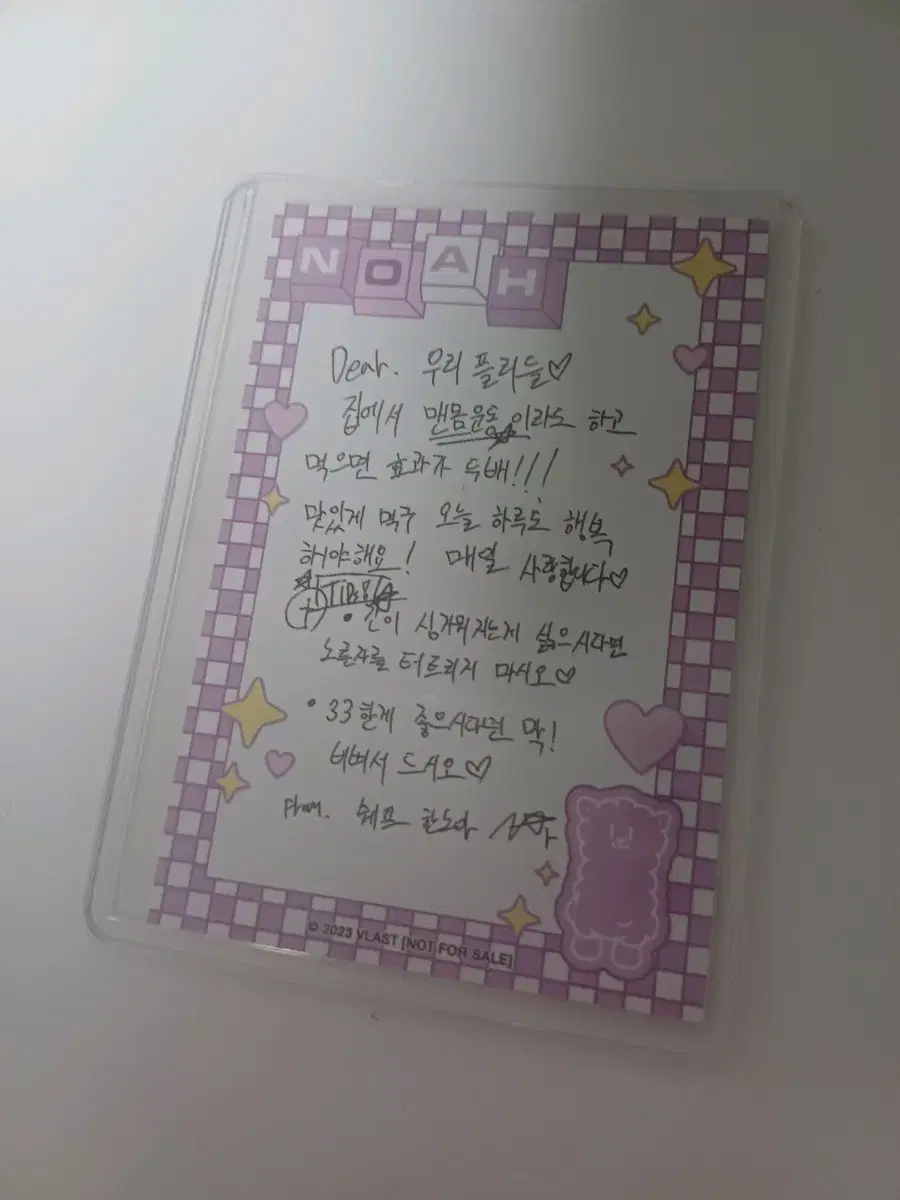 NOAH
Dear. 우리 플리들♡
집에서 맨몸운동이라도 하고
먹으면 효과가 두배!!!
맛있게 먹구 오늘 하루도 행복
해야해요! 매일 사랑합니다♡
TIP
• 간이 싱거워지는게 싫으시다면
노른자를 터트리지 마시오♡
• 33한게 좋으시다면 막!
비벼서 드시오♡
From. 쉐프 한노아
© 2023 VLAST [NOT FOR SALE]